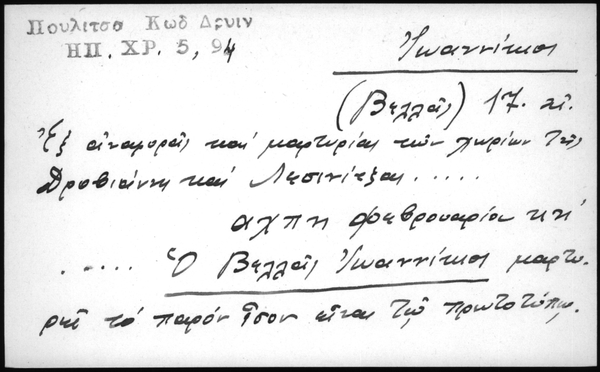 Πουλιτσα Κωδ Δρυιν
ΗΠ. ΧΡ. 5, 94
Ἰωαννίκιος
(Βελλᾶς) 17. αἰ.
Ἐξ ἀναφορᾶς καί μαρτυρίας τῶν χωρίων τῆς
Δροβιάνης καί Λεσινίτζας .....
αχπη φεβρουαρίου κη'
..... Ὁ Βελλᾶς Ἰωαννίκιος μαρτυ-
ρεῖ τό παρόν ἴσον εἶναι τῷ πρωτοτύπῳ.